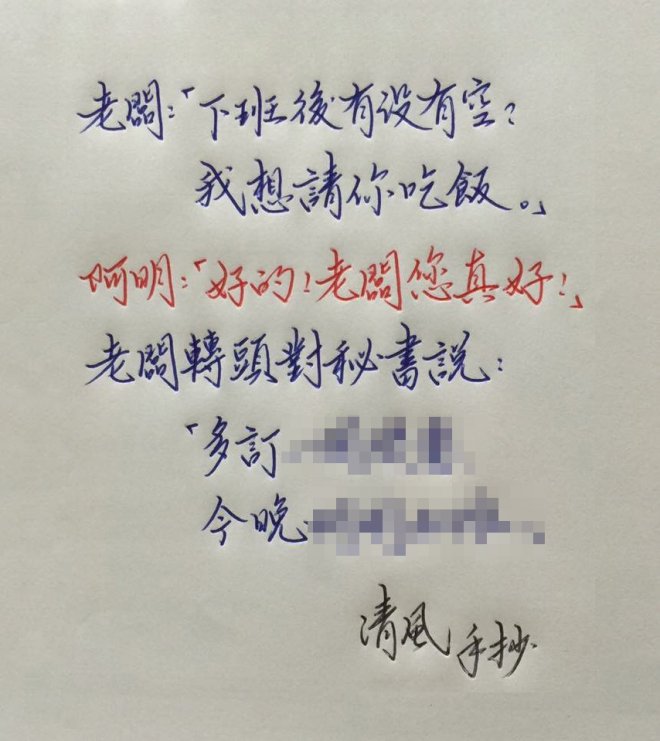 老闆:「下班後有没有空?
我想請你吃飯。」
阿明:「好的!老闆您真好!」
老闆轉頭對秘書說:
「多訂
今晚
清風手抄